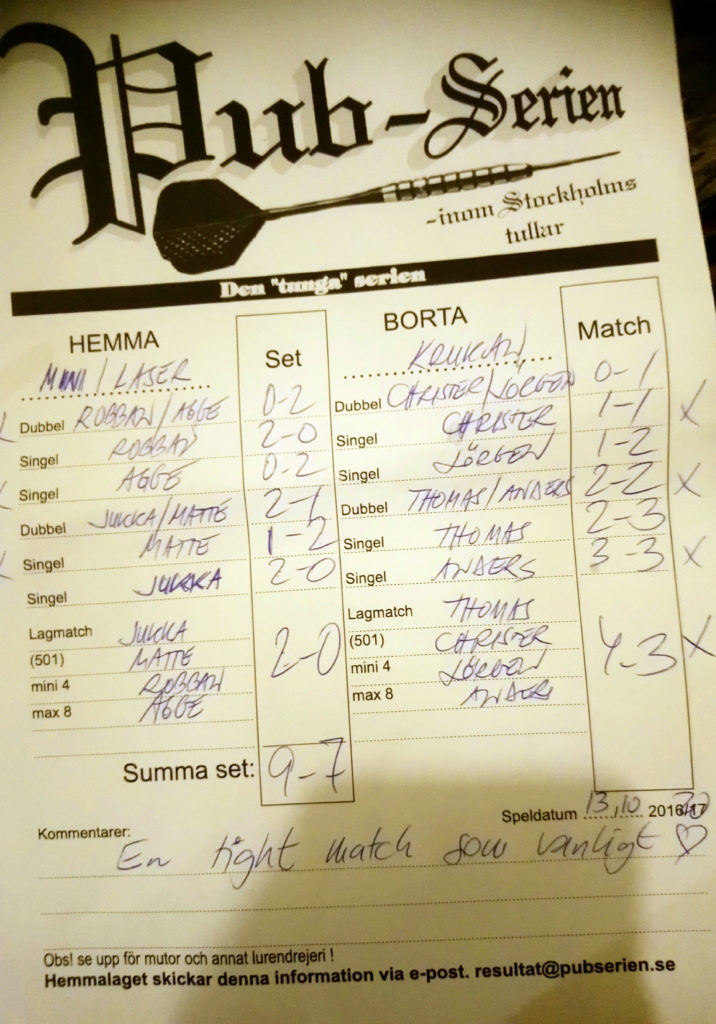 Pub-Serien
-inom Stockholms
tullar
Den "tunga" serien
HEMMA Set BORTA Match
MINI/LASER KRUKAN
Dubbel ROBBAN/AGGE 0-2 Dubbel CHRISTER/JÖRGEN 0-1
Singel ROBBAN 2-0 Singel CHRISTER 1-1 X
Singel AGGE 0-2 Singel JÖRGEN 1-2
Dubbel JUKKA/MATTE 2-1 Dubbel THOMAS/ANDERS 2-2 X
Singel MATTE 1-2 Singel THOMAS 2-3
Singel JUKKA 2-0 Singel ANDERS 3-3 X
Lagmatch JUKKA Lagmatch THOMAS
(501) MATTE 2-0 (501) CHRISTER 4-3 X
mini 4 ROBBAN mini 4 JÖRGEN
max 8 AGGE max 8 ANDERS
Summa set: 9-7
Speldatum 13,10 2016/
Kommentarer:
En tight match som vanligt ♡
Obs! se upp för mutor och annat lurendrejeri !
Hemmalaget skickar denna information via e-post. resultat@pubserien.se